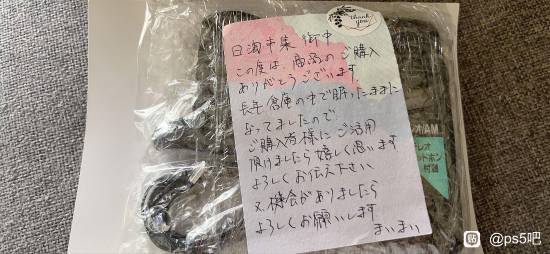 thank you!
日淘市集 御中
この度は、商品のご購入
ありがとうございます
長年倉庫の中で眠ったままに
なってましたので
ご購入者様にご活用
頂けましたら嬉しく思います
よろしくお伝え下さい
又、機会がありましたら
よろしくお願いします
まいまい
オ/AM
テレオ
ッドホン
付属
貼 @ps5吧